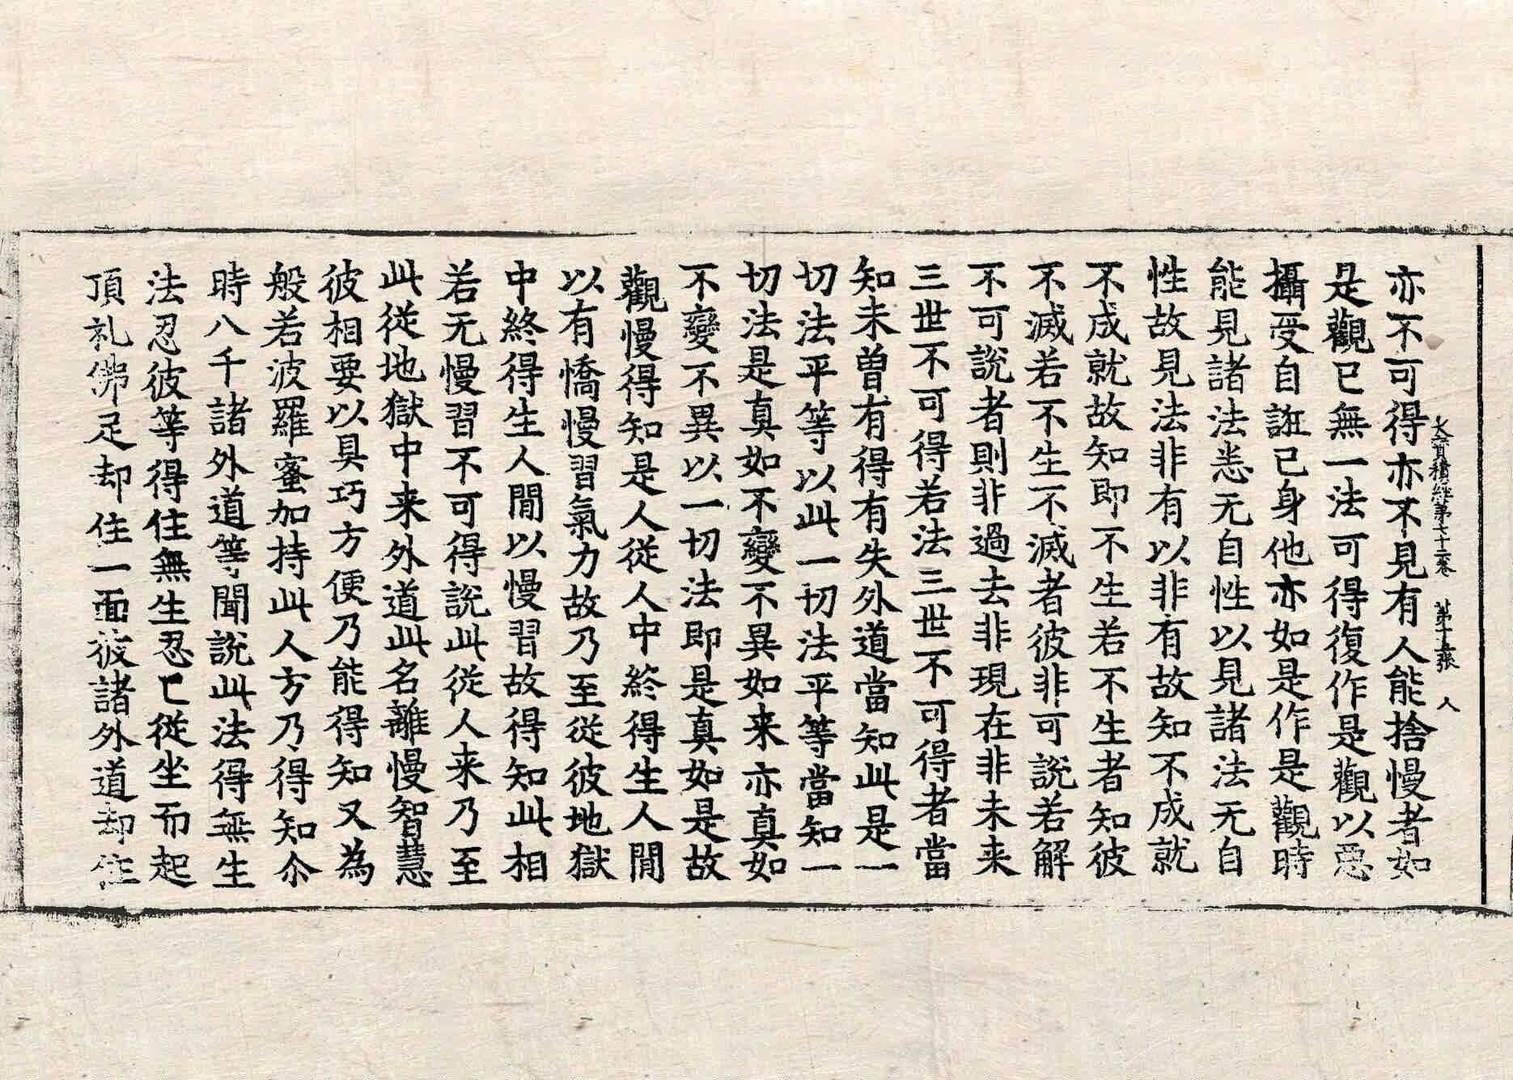 大寶積經第七十二卷 第十五張 人
亦不可得亦不見有人能捨慢者如
是觀已無一法可得復作是觀以惡
攝受自誑己身他亦如是作是觀時
能見諸法悉无自性以見諸法无自
性故見法非有以非有故知不成就
不成就故知即不生若不生者知彼
不滅若不生不滅者彼非可說若解
不可說者則非過去非現在非未来
三世不可得若法三世不可得者當
知未曽有得有失外道當知此是一
切法平等以此一切法平等當知一
切法是真如不變不異如来亦真如
不變不異以一切法即是真如是故
觀慢得知是人從人中終得生人間
以有憍慢習氣力故乃至從彼地獄
中終得生人間以慢習故得知此相
若无慢習不可得說此從人来乃至
此從地獄中来外道此名離慢智慧
彼相要以具巧方便乃能得知又為
般若波羅蜜加持此人方乃得知尒
時八千諸外道等聞說此法得無生
法忍彼等得住無生忍已從坐而起
頂礼佛足却住一面彼諸外道却住